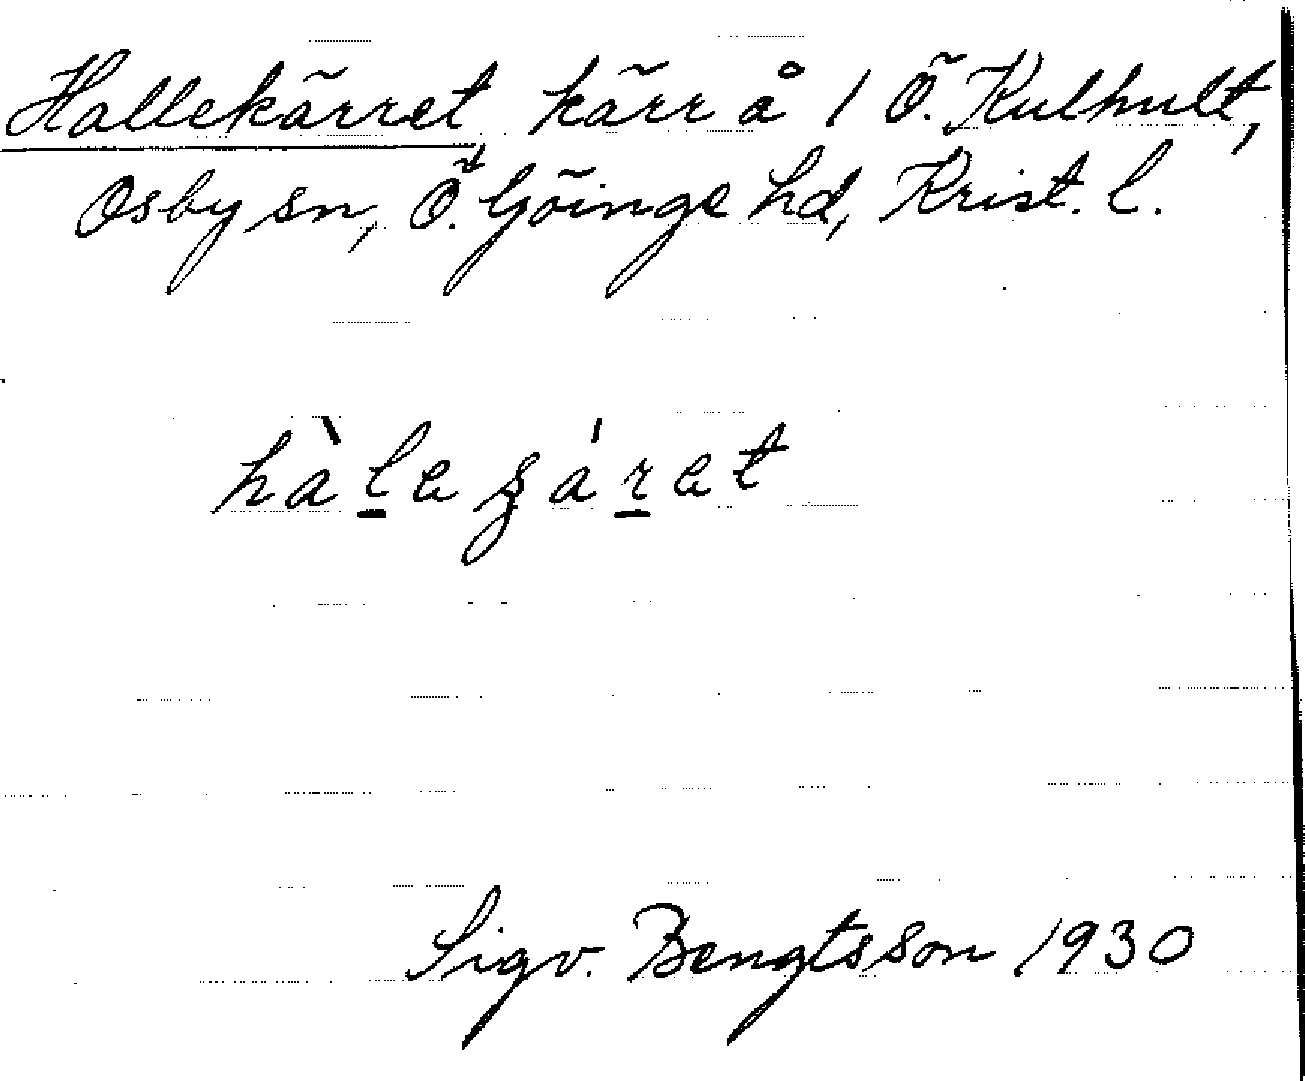 Hallekärret, kärr å 1 Ö. Kulhult,
Osby sn, Ö. Göinge hd, Krist. l.
hàleʂáret
Sigv. Bengtsson 1930